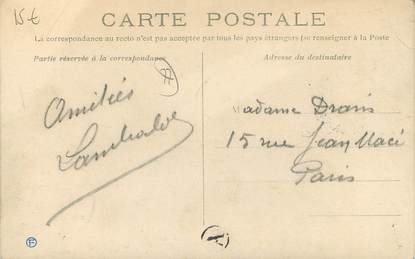 15€
CARTE POSTALE
La correspondance au recto n'est pas acceptée par tous les pays étrangers (se renseigner à la Poste
Partie réservée à la correspondance
Adresse du destinataire
Amitiés
Madame Drain
15 rue Jean Macé
Paris